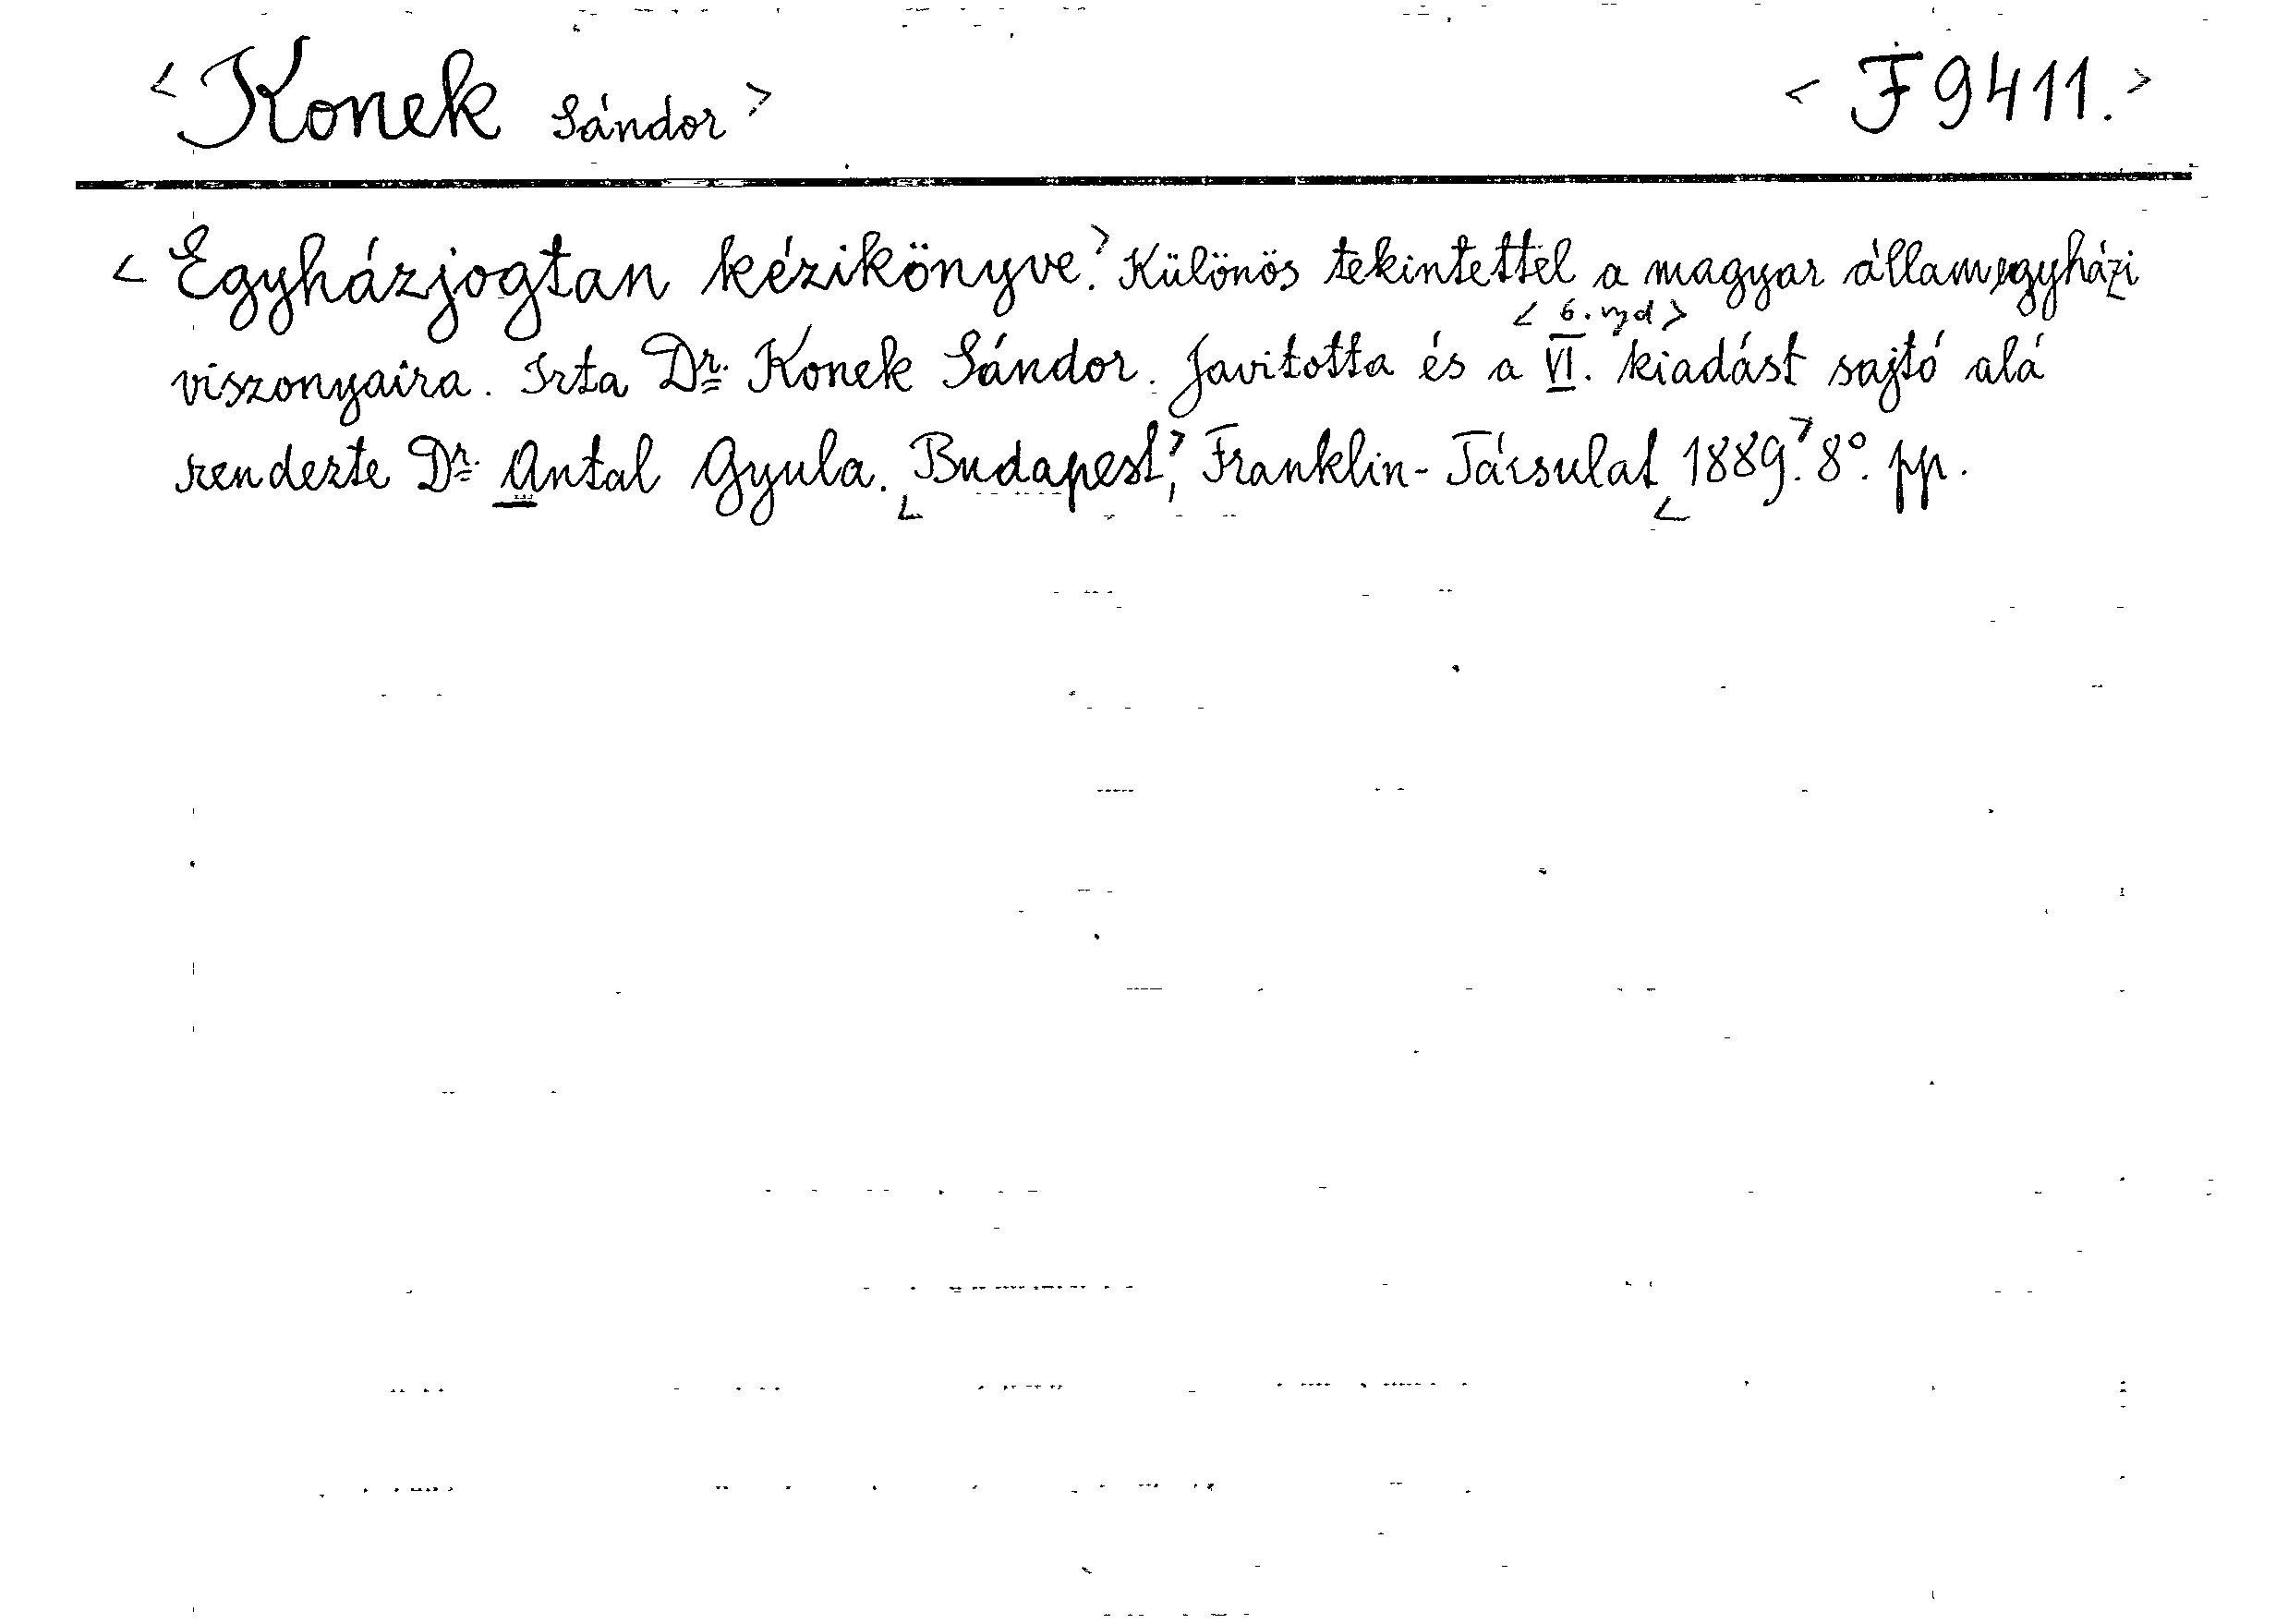 < Konek Sándor > < F 9411. >
< Egyházjogtan kézikönyve.> Különös tekintettel a magyar államegyházi
< 6. vyd >
viszonyaira. Irta Dr. Konek Sándor. Javitotta és a VI. kiadást sajtó alá
rendezte Dr. Antal Gyula. < Budapest,> Franklin-Társulat < 1889.> 8°. pp.